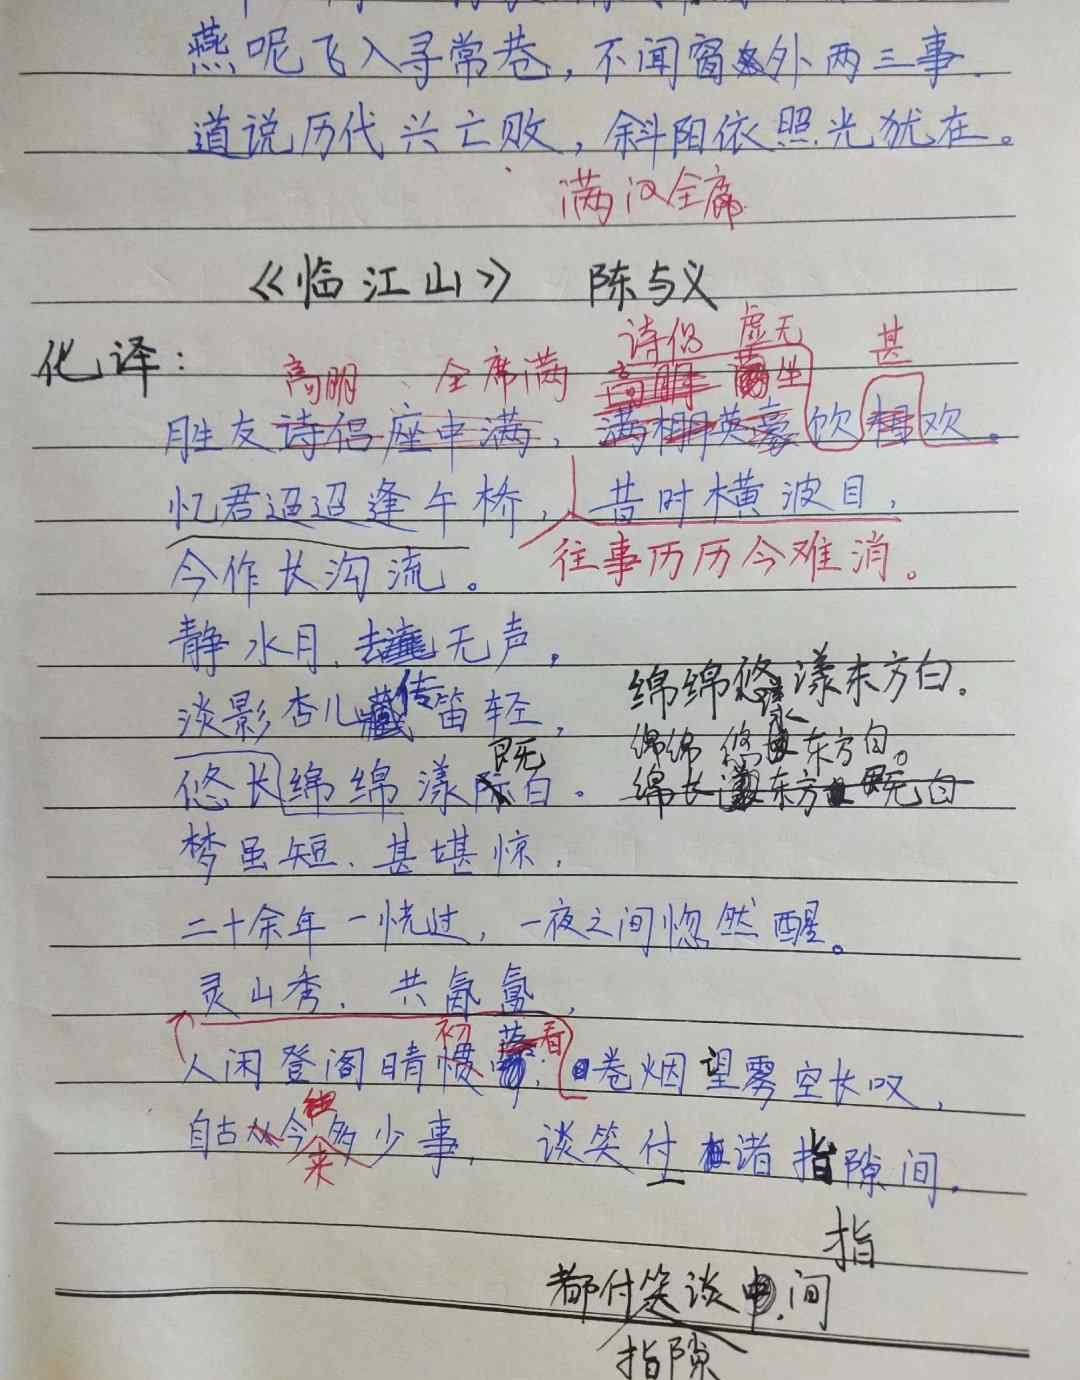 燕呢飞入寻常巷，不闻窗外两三事
道说历代兴亡败，斜阳依照光犹在。
满汉全席
《临江山》 陈与义
化译：
诗侣 虚无 甚
高明、全席满 高朋 坐
胜友诗侣座中满，满棚英豪饮相欢。
忆君迢迢逢午桥，昔时横波目，
往事历历今难消。
今作长沟流。
静水月、去无声，
绵绵悠漾东方白。
传
淡影杏儿藏笛轻，
绵绵 悠 东方白。
既
悠长绵绵漾 白。
绵长 东方 既白
梦虽短、甚堪惊，
二十余年一恍过，一夜之间忽然醒。
灵山秀、共氤氲，
初 看
人闲登阁晴惯 ，卷烟望雾空长叹，
自古从今多少事， 谈笑付 诸指隙间。
来
指
都付笑谈中、间
指隙